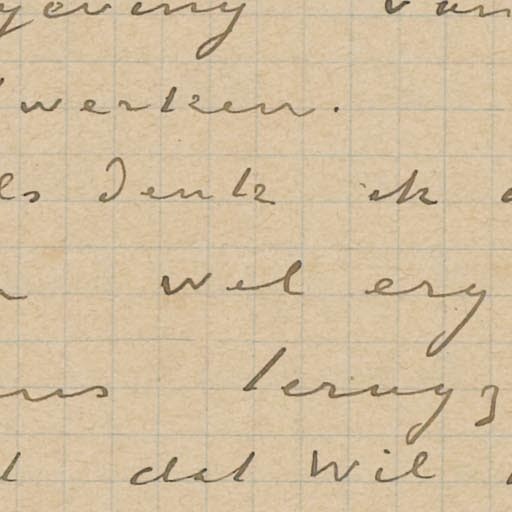 geving van
werken.
ls denk ik
wel erg
ns terugz
t dat wil